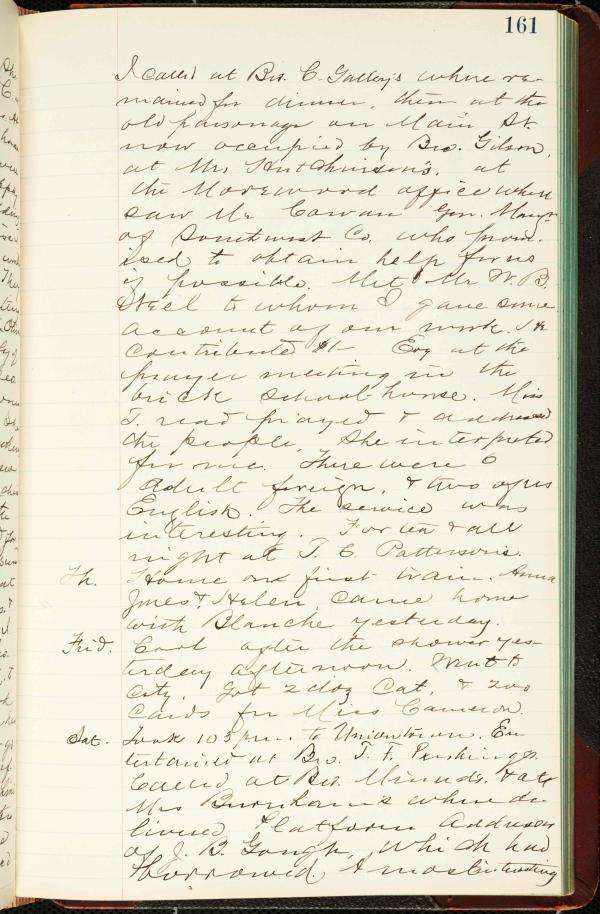 161
I called at Bro. C. Galley's where re-
mained for dinner, then at the
old parsonage on Main St.
now occupied by Bro. Gilson,
at Mrs Hutchinson's, at
the Morewood office where
saw Mr Cowan Gen. Mangr
of Southwest Co. who prom-
ised to obtain help for us
if possible. Met Mr W. B.
Neel to whom I gave some
account of our work. He
contributed $1- Eve at the
prayer meeting in the
brick school-house. Miss
T. read prayed & addressed
the people, She interpreted
for me. There were 6
adult foreign, & two of us
English. The service was
interesting. For tea & all
night at T. C. Patterson's.
Th. Home on first train. Anna
Jones & Helen came home
with Blanche yesterday.
Frid. Cool after the shower yes-
terday afternoon. Went to
city. Got 2 doz Cat. & 200
cards for Miss Cameron.
Sat. Took 1 05 p.m. to Uniontown. En-
tertained at Bro. T. F. Pershing's.
Called at Bro. & at
Mrs Burnham's where de-
livered Platform Addresses
of J. B. Gough, which had
borrowed. A most interesting